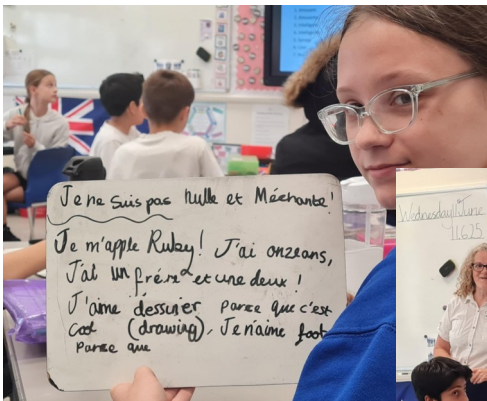 Je ne suis pas nulle et Méchante!
Je m'apple Ruby! J'ai onzeans,
J'ai un frére et une deux!
J'aime dessinier parce que c'est
cool (drawing), Je n'aime foot
parce que
Wednesday 11 June
11.6.25